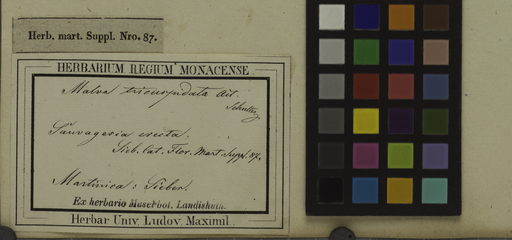 Herb. mart. Suppl. Nro. 87.
HERBARIUM REGIUM MONACENSE
Malva tricuspidata Ait.
Sauvagesia erecta.
Sieb. Cat. Flor. Mart. Suppl. 87.
Martinica: Sieber.
Ex herbario Musei bot. Landishuth.
Herbar Univ. Ludov. Maximil.